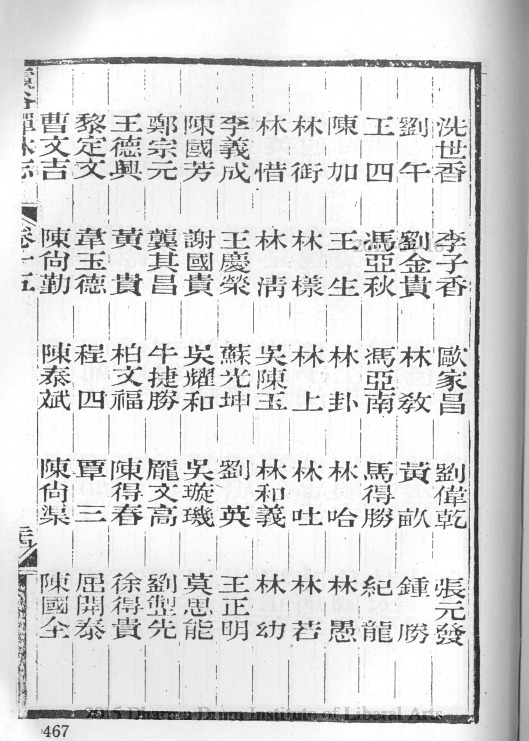 冼世香 李子香 歐家昌 劉偉乾 張元發
劉午 劉金貴 林敎 黃畝 鍾勝
王四 馮亞秋 馮亞南 馬得勝 紀龍
陳加 王生 林卦 林哈 林愚
林街 林樣 林上 林吐 林若
林惜 林清 吳陳玉 林和義 林幼
李義成 王慶榮 蘇光坤 劉英 王正明
陳國芳 謝國貴 吳耀和 吳璇璣 莫思能
鄭宗元 龔其昌 牛捷勝 龐文高 劉先
王德興 黃貴 柏文福 陳得春 徐得貴
黎定文 韋玉德 程四 覃三 屈開泰
曹文吉 陳尙勤 陳泰斌 陳尙渠 陳國全
卷十五
467
2015 Dharma Drum Institute of Liberal Arts